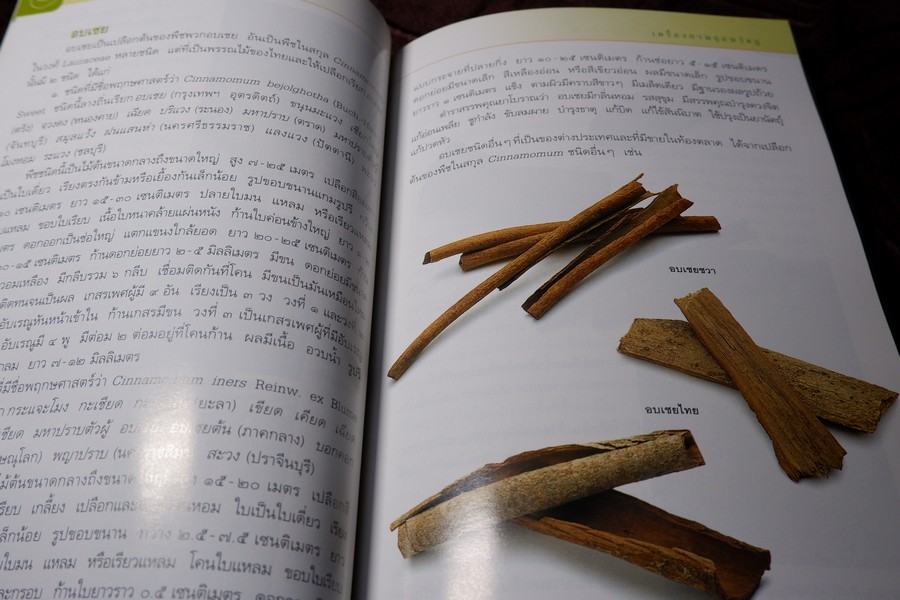 อบเชย
อบเชยเป็นเปลือกต้นของพืชพวกอบเชย อันเป็นพืชในสกุล
ในวงศ์ Lauraceae หลายชนิด แต่ที่เป็นพรรณไม้ของไทยและให้เปลือก
นั้นมี ๒ ชนิด ได้แก่
๑. ชนิดที่มีชื่อพฤกษศาสตร์ว่า Cinnamomum bejolghota
Sweet ชนิดนี้ลางถิ่นเรียก อบเชย (กรุงเทพฯ อุตรดิตถ์) ขนุนมะแวง
(ตรัง) จวงดง (หนองคาย) เฉียด บริแวง (ระนอง) มหาปราบ (ตราด)
(จันทบุรี) สมุลแว้ง ฝนแสนห่า (นครศรีธรรมราช) แลงแวง (ปัตตานี)
โมงหอม ระแวง (ชลบุรี)
พืชชนิดนี้เป็นไม้ต้นขนาดกลางถึงขนาดใหญ่ สูง ๗-๒๕ เมตร
เป็นใบเดี่ยว เรียงตรงกันข้ามหรือเยื้องกันเล็กน้อย รูปขอบขนานแกมรูปรี
เซนติเมตร ยาว ๑๕-๓๐ เซนติเมตร ปลายใบมน แหลม หรือเรียวแหลม
แหลม ขอบใบเรียบ เนื้อใบหนาคล้ายแผ่นหนัง ก้านใบค่อนข้างใหญ่ ยาว
ดอกออกเป็นช่อใหญ่ แตกแขนงใกล้ยอด ยาว ๒๐-๒๕ เซนติเมตร
๑๐-๑๕ เซนติเมตร ก้านดอกย่อยยาว ๒-๕ มิลลิเมตร มีขน ดอกย่อย
มีกลีบรวม ๖ กลีบ เชื่อมติดกันที่โคน มีขนเป็นมันเหมือน
ติดทนจนเป็นผล เกสรเพศผู้มี ๙ อัน เรียงเป็น ๓ วง วงที่ ๑ และวงที่
อับเรณูหันหน้าเข้าใน ก้านเกสรมีขน วงที่ ๓ เป็นเกสรเพศผู้ที่มี
อับเรณูมี ๔ พู มีต่อม ๒ ต่อมอยู่ที่โคนก้าน ผลมีเนื้อ อวบน้ำ
ยาว ๗-๑๒ มิลลิเมตร
มีชื่อพฤกษศาสตร์ว่า Cinnamomum iners Reinw. ex Blume
กระแจะโมง กะเชียด เชียด เคียด
มหาปราบตัวผู้ (ภาคกลาง) บอกคอก
พญาปราบ สะวง (ปราจีนบุรี)
ขนาดกลางถึงขนาด ๑๕-๒๐ เมตร
เกลี้ยง เปลือกและ หอม ใบเป็นใบเดี่ยว
เล็กน้อย รูปขอบขนาน กว้าง ๒.๕-๗.๕ เซนติเมตร ยาว
ใบมน แหลม หรือเรียวแหลม โคนใบแหลม ขอบใบเรียบ
ก้านใบยาวราว ๐.๕ เซนติเมตร
แบบกระจายที่ปลายกิ่ง ยาว ๑๐-๒๕ เซนติเมตร ก้านช่อยาว ๕-๑๕ เซนติเมตร
ดอกย่อยมีขนาดเล็ก สีเหลืองอ่อน หรือสีเขียวอ่อน ผลมีขนาดเล็ก รูปขอบขนาน
ยาวราว ๑ เซนติเมตร แข็ง ตามผิวมีคราบสีขาวๆ มีเมล็ดเดียว มีฐานรองผลรูปถ้วย
ตำราสรรพคุณยาโบราณว่า อบเชยมีกลิ่นหอม รสสุขุม มีสรรพคุณบำรุงดวงจิต
แก้อ่อนเพลีย ชูกำลัง ขับลมผาย บำรุงธาตุ แก้บิด แก้ไข้สันนิบาต ใช้ปรุงเป็นยานัตถุ์
แก้ปวดหัว
อบเชยชนิดอื่นๆ ที่เป็นของต่างประเทศและที่มีขายในท้องตลาด ได้จากเปลือก
ต้นของพืชในสกุล Cinnamomum ชนิดอื่นๆ เช่น
อบเชยชวา
อบเชยไทย